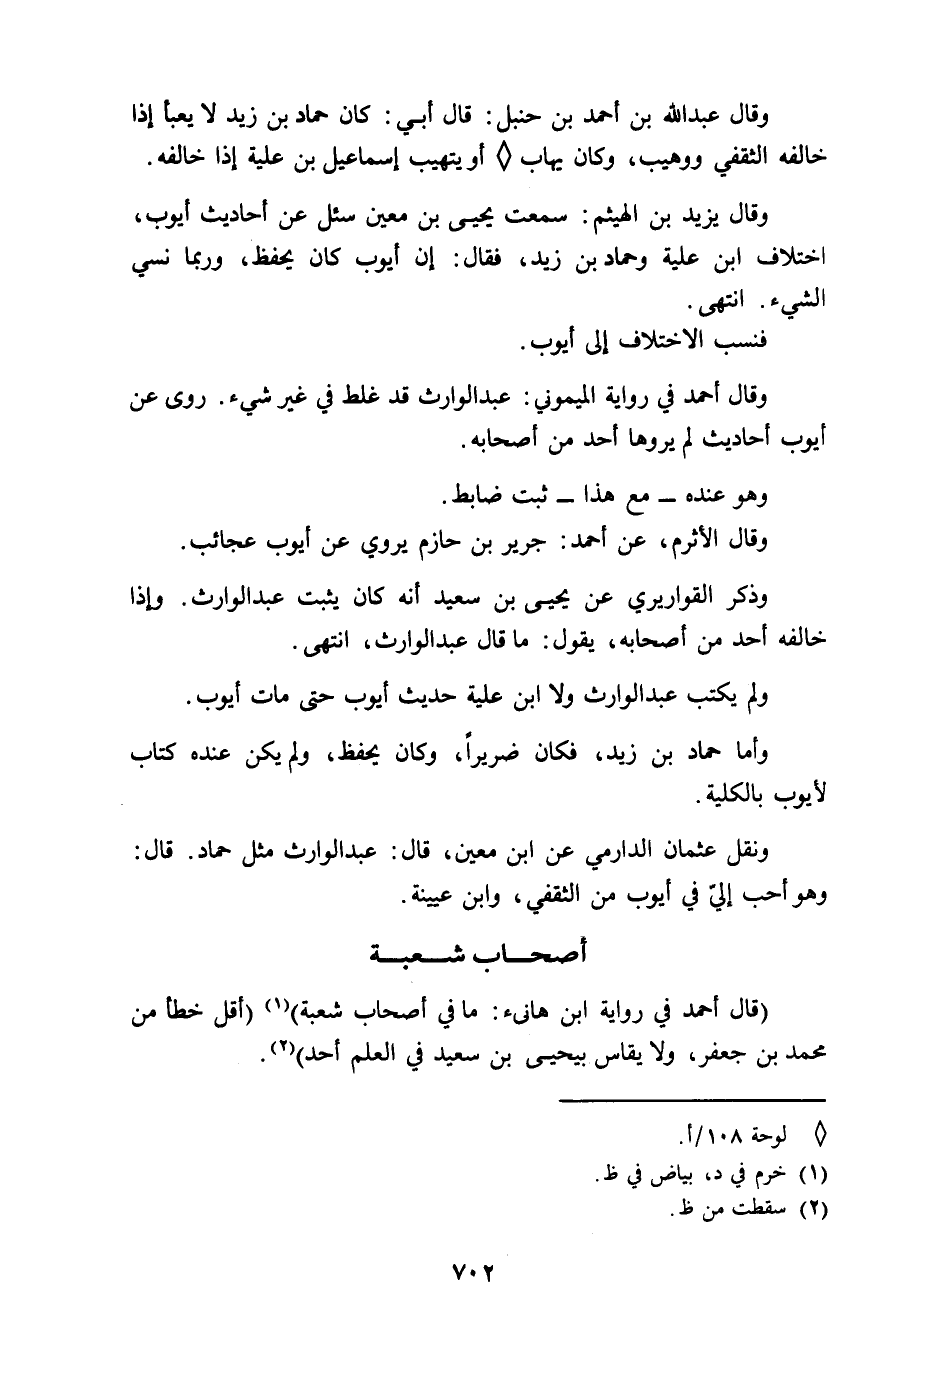 وقال عبدالله بن أحمد بن حنبل: قال أبي: كان حماد بن زيد لا يعبأ إذا
خالفه الثقفي ووهيب، وكان يهاب ◊ أو يتهيب إسماعيل بن علية إذا خالفه.
وقال يزيد بن الهيثم: سمعت يحيى بن معين سئل عن أحاديث أيوب،
اختلاف ابن علية وحماد بن زيد، فقال: إن أيوب كان يحفظ، وربما نسي
الشيء. انتهى.
فنسب الاختلاف إلى أيوب.
وقال أحمد في رواية الميموني: عبدالوارث قد غلط في غير شيء. روى عن
أيوب أحاديث لم يروها أحد من أصحابه.
وهو عنده ــ مع هذا ــ ثبت ضابط.
وقال الأثرم، عن أحمد: جرير بن حازم يروي عن أيوب عجائب.
وذكر القواريري عن يحيى بن سعيد أنه كان يثبت عبدالوارث. وإذا
خالفه أحد من أصحابه، يقول: ما قال عبدالوارث، انتهى.
ولم يكتب عبدالوارث ولا ابن علية حديث أيوب حتى مات أيوب.
وأما حماد بن زيد، فكان ضريراً، وكان يحفظ، ولم يكن عنده كتاب
لأيوب بالكلية.
ونقل عثمان الدارمي عن ابن معين، قال: عبدالوارث مثل حماد. قال:
وهو أحب إليّ في أيوب من الثقفي، وابن عيينة.
أصحــاب شــعبــة
(قال أحمد في رواية ابن هانىء: ما في أصحاب شعبة)(١) (أقل خطأ من
محمد بن جعفر، ولا يقاس بيحيى بن سعيد في العلم أحد)(٢).
◊ لوحة ١٠٨/أ.
(١) خرم في د، بياض في ظ.
(٢) سقطت من ظ.
٧٠٢